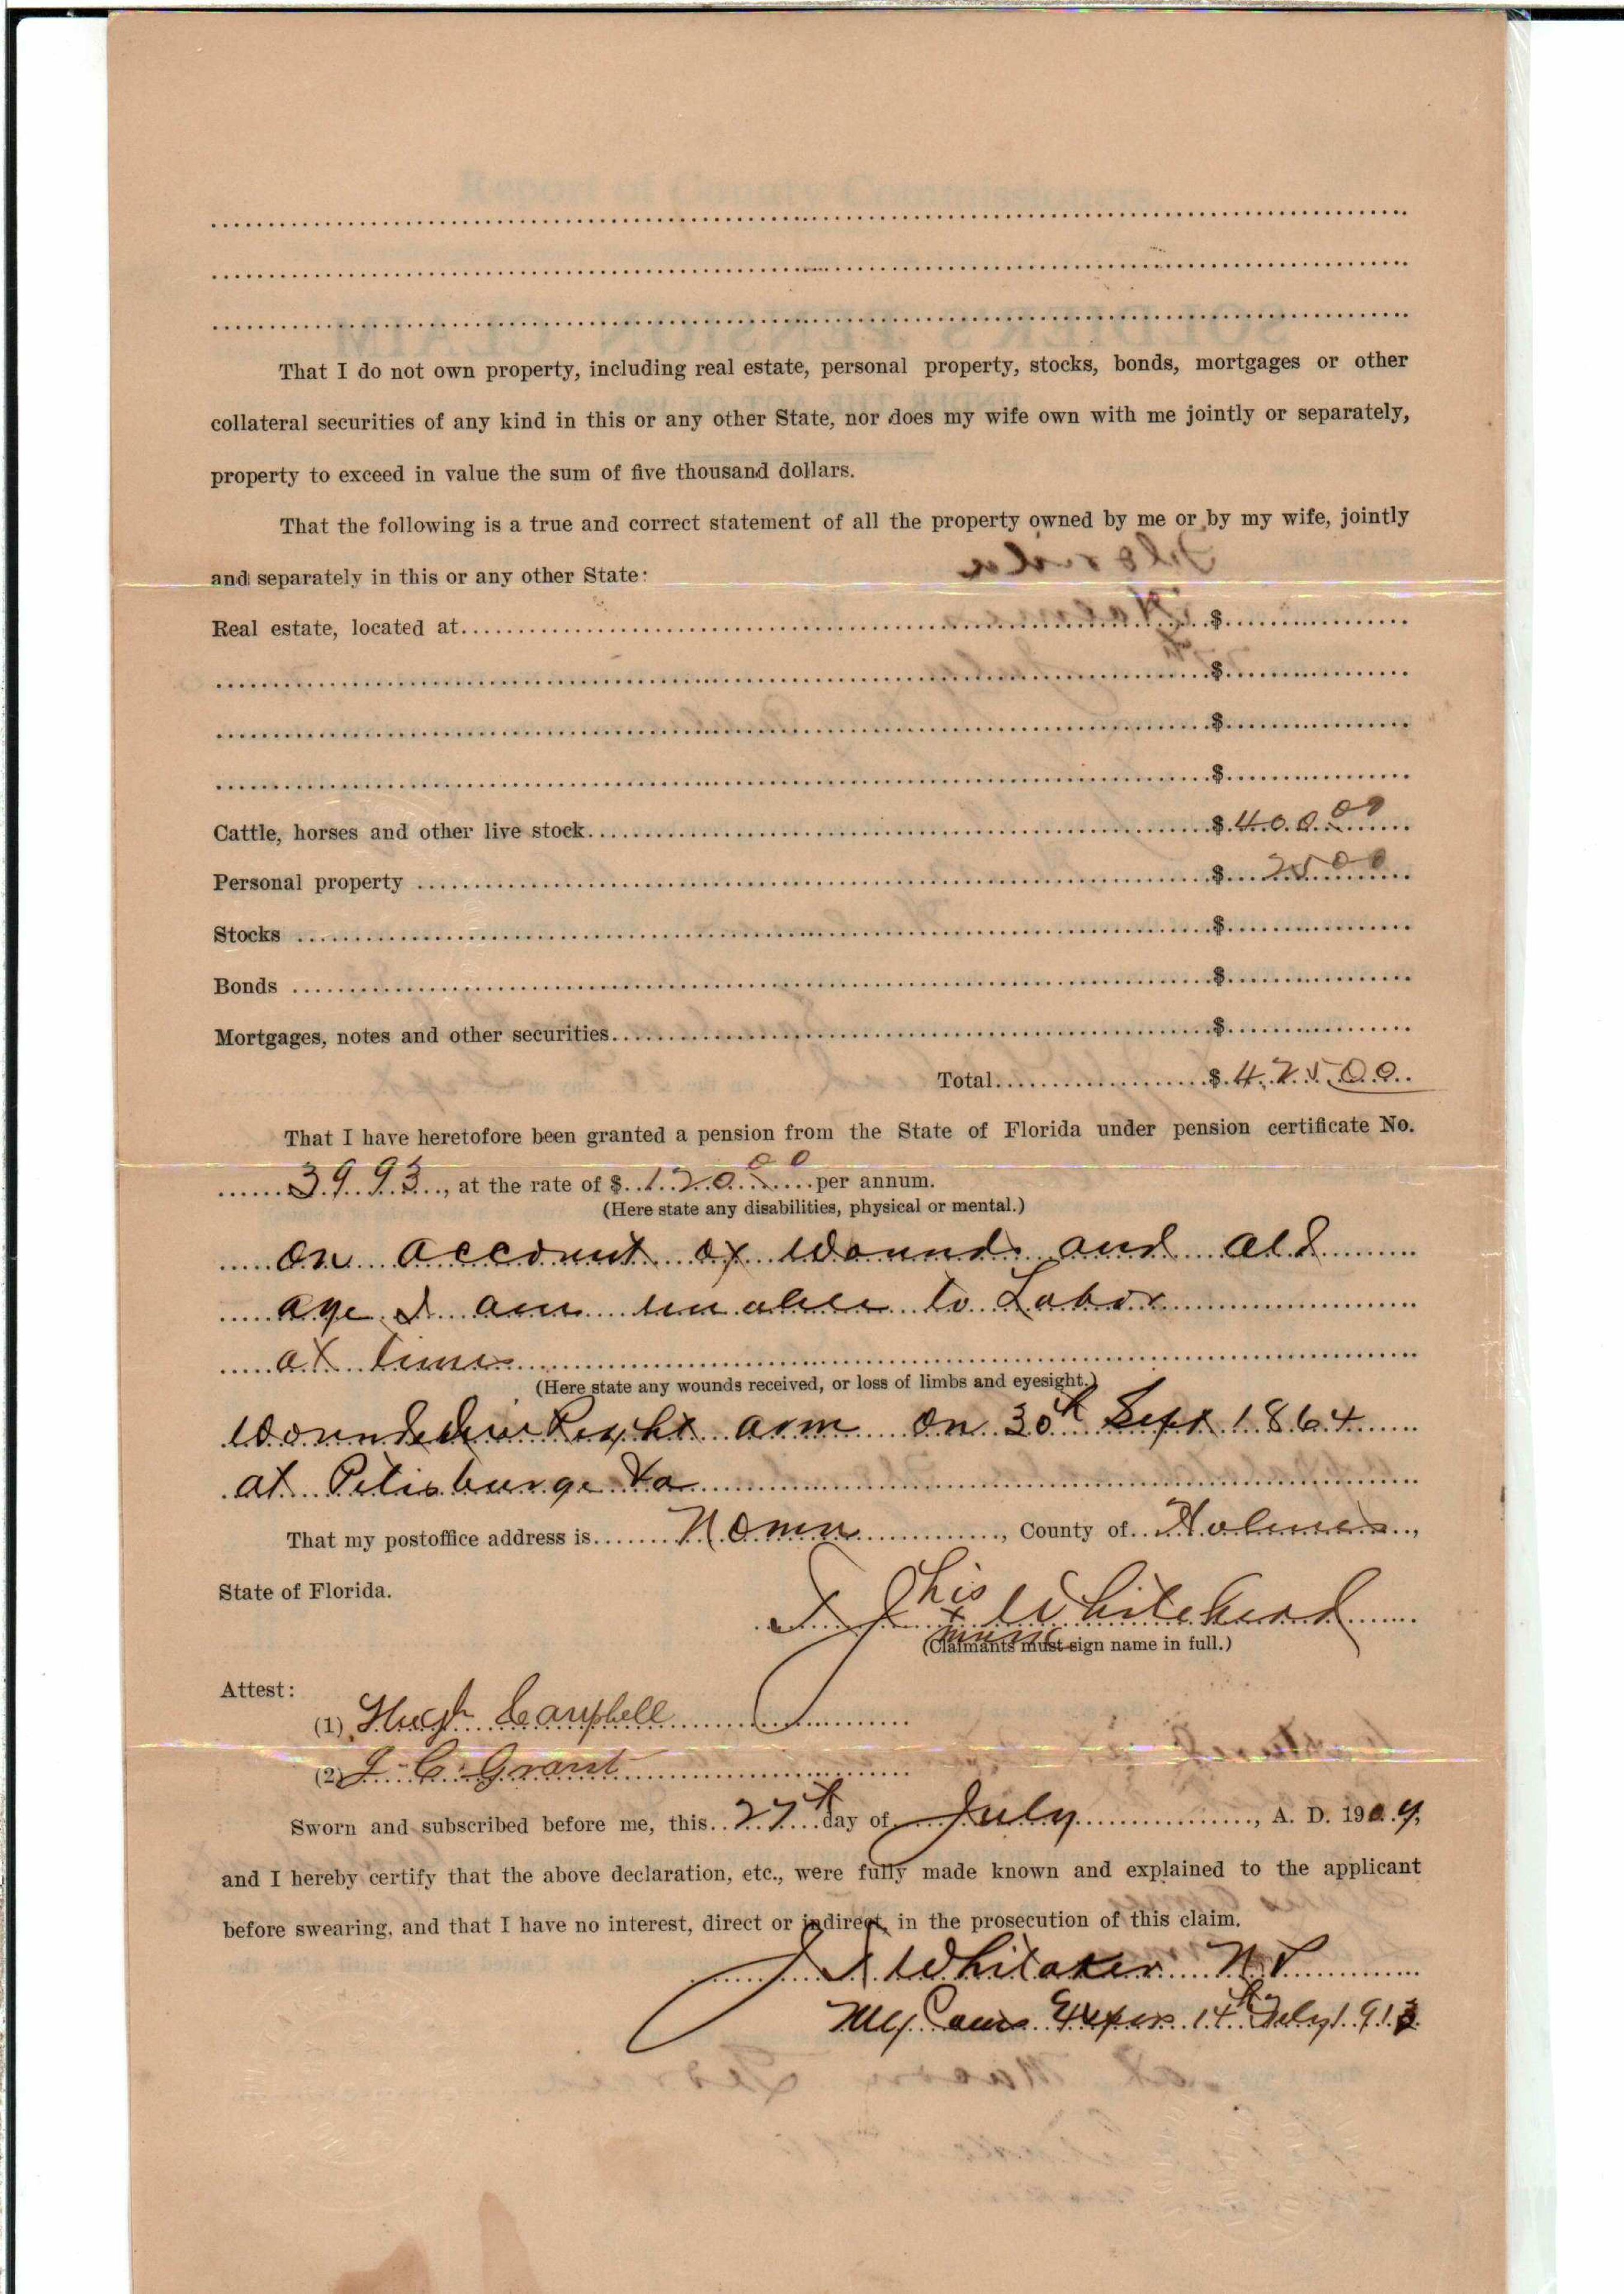 That I do not own property, including real estate, personal property, stocks, bonds, mortgages or other
collateral securities of any kind in this or any other State, nor does my wife own with me jointly or separately,
property to exceed in value the sum of five thousand dollars.
That the following is a true and correct statement of all the property owned by me or by my wife, jointly
and separately in this or any other State:
Real estate, located at $
$
$
$
Cattle, horses and other live stock $ 400 00
Personal property $ 25 00
Stocks $
Bonds $
Mortgages, notes and other securities $
Total $ 425 00
That I have heretofore been granted a pension from the State of Florida under pension certificate No.
3993, at the rate of $ 120 00 per annum.
(Here state any disabilities, physical or mental.)
on account of wounds and old
age I am unable to Labor
at times
(Here state any wounds received, or loss of limbs and eyesight.)
wounded in Right arm on 30th Sept 1864
at Petisburge Va
That my postoffice address is Noma, County of Holmes,
State of Florida.
his
J x Whitehead
mark
(Claimants must sign name in full.)
Attest:
(1) Hugh Campbell
(2) J. C. Grant
Sworn and subscribed before me, this 27th day of July, A. D. 1909,
and I hereby certify that the above declaration, etc., were fully made known and explained to the applicant
before swearing, and that I have no interest, direct or indirect, in the prosecution of this claim.
Whitaker N P
My Com Expires 14th July 1913